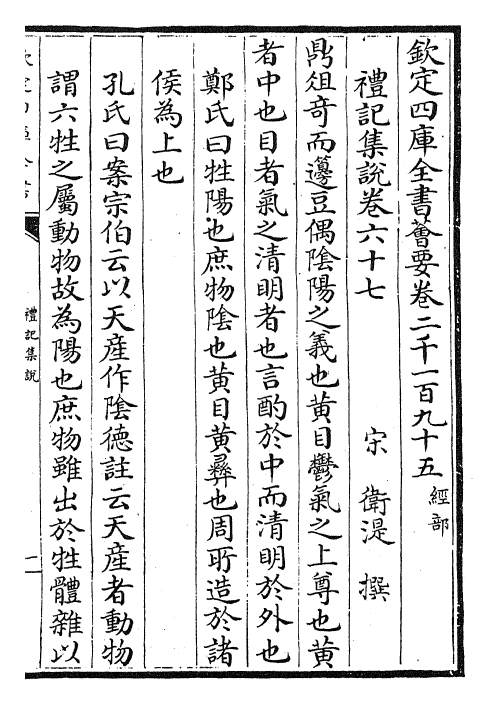 欽定四庫全書薈要卷二千一百九十五 經部
禮記集說卷六十七
宋 衛湜 撰
鼎俎奇而籩豆偶陰陽之義也黄目鬱氣之上尊也黄
者中也目者氣之清明者也言酌於中而清明於外也
鄭氏曰牲陽也庶物陰也黄目黄彝也周所造於諸
侯為上也
孔氏曰案宗伯云以天産作陰德註云天産者動物
謂六牲之屬動物故為陽也庶物雖出於牲體雜以
禮記集說
一